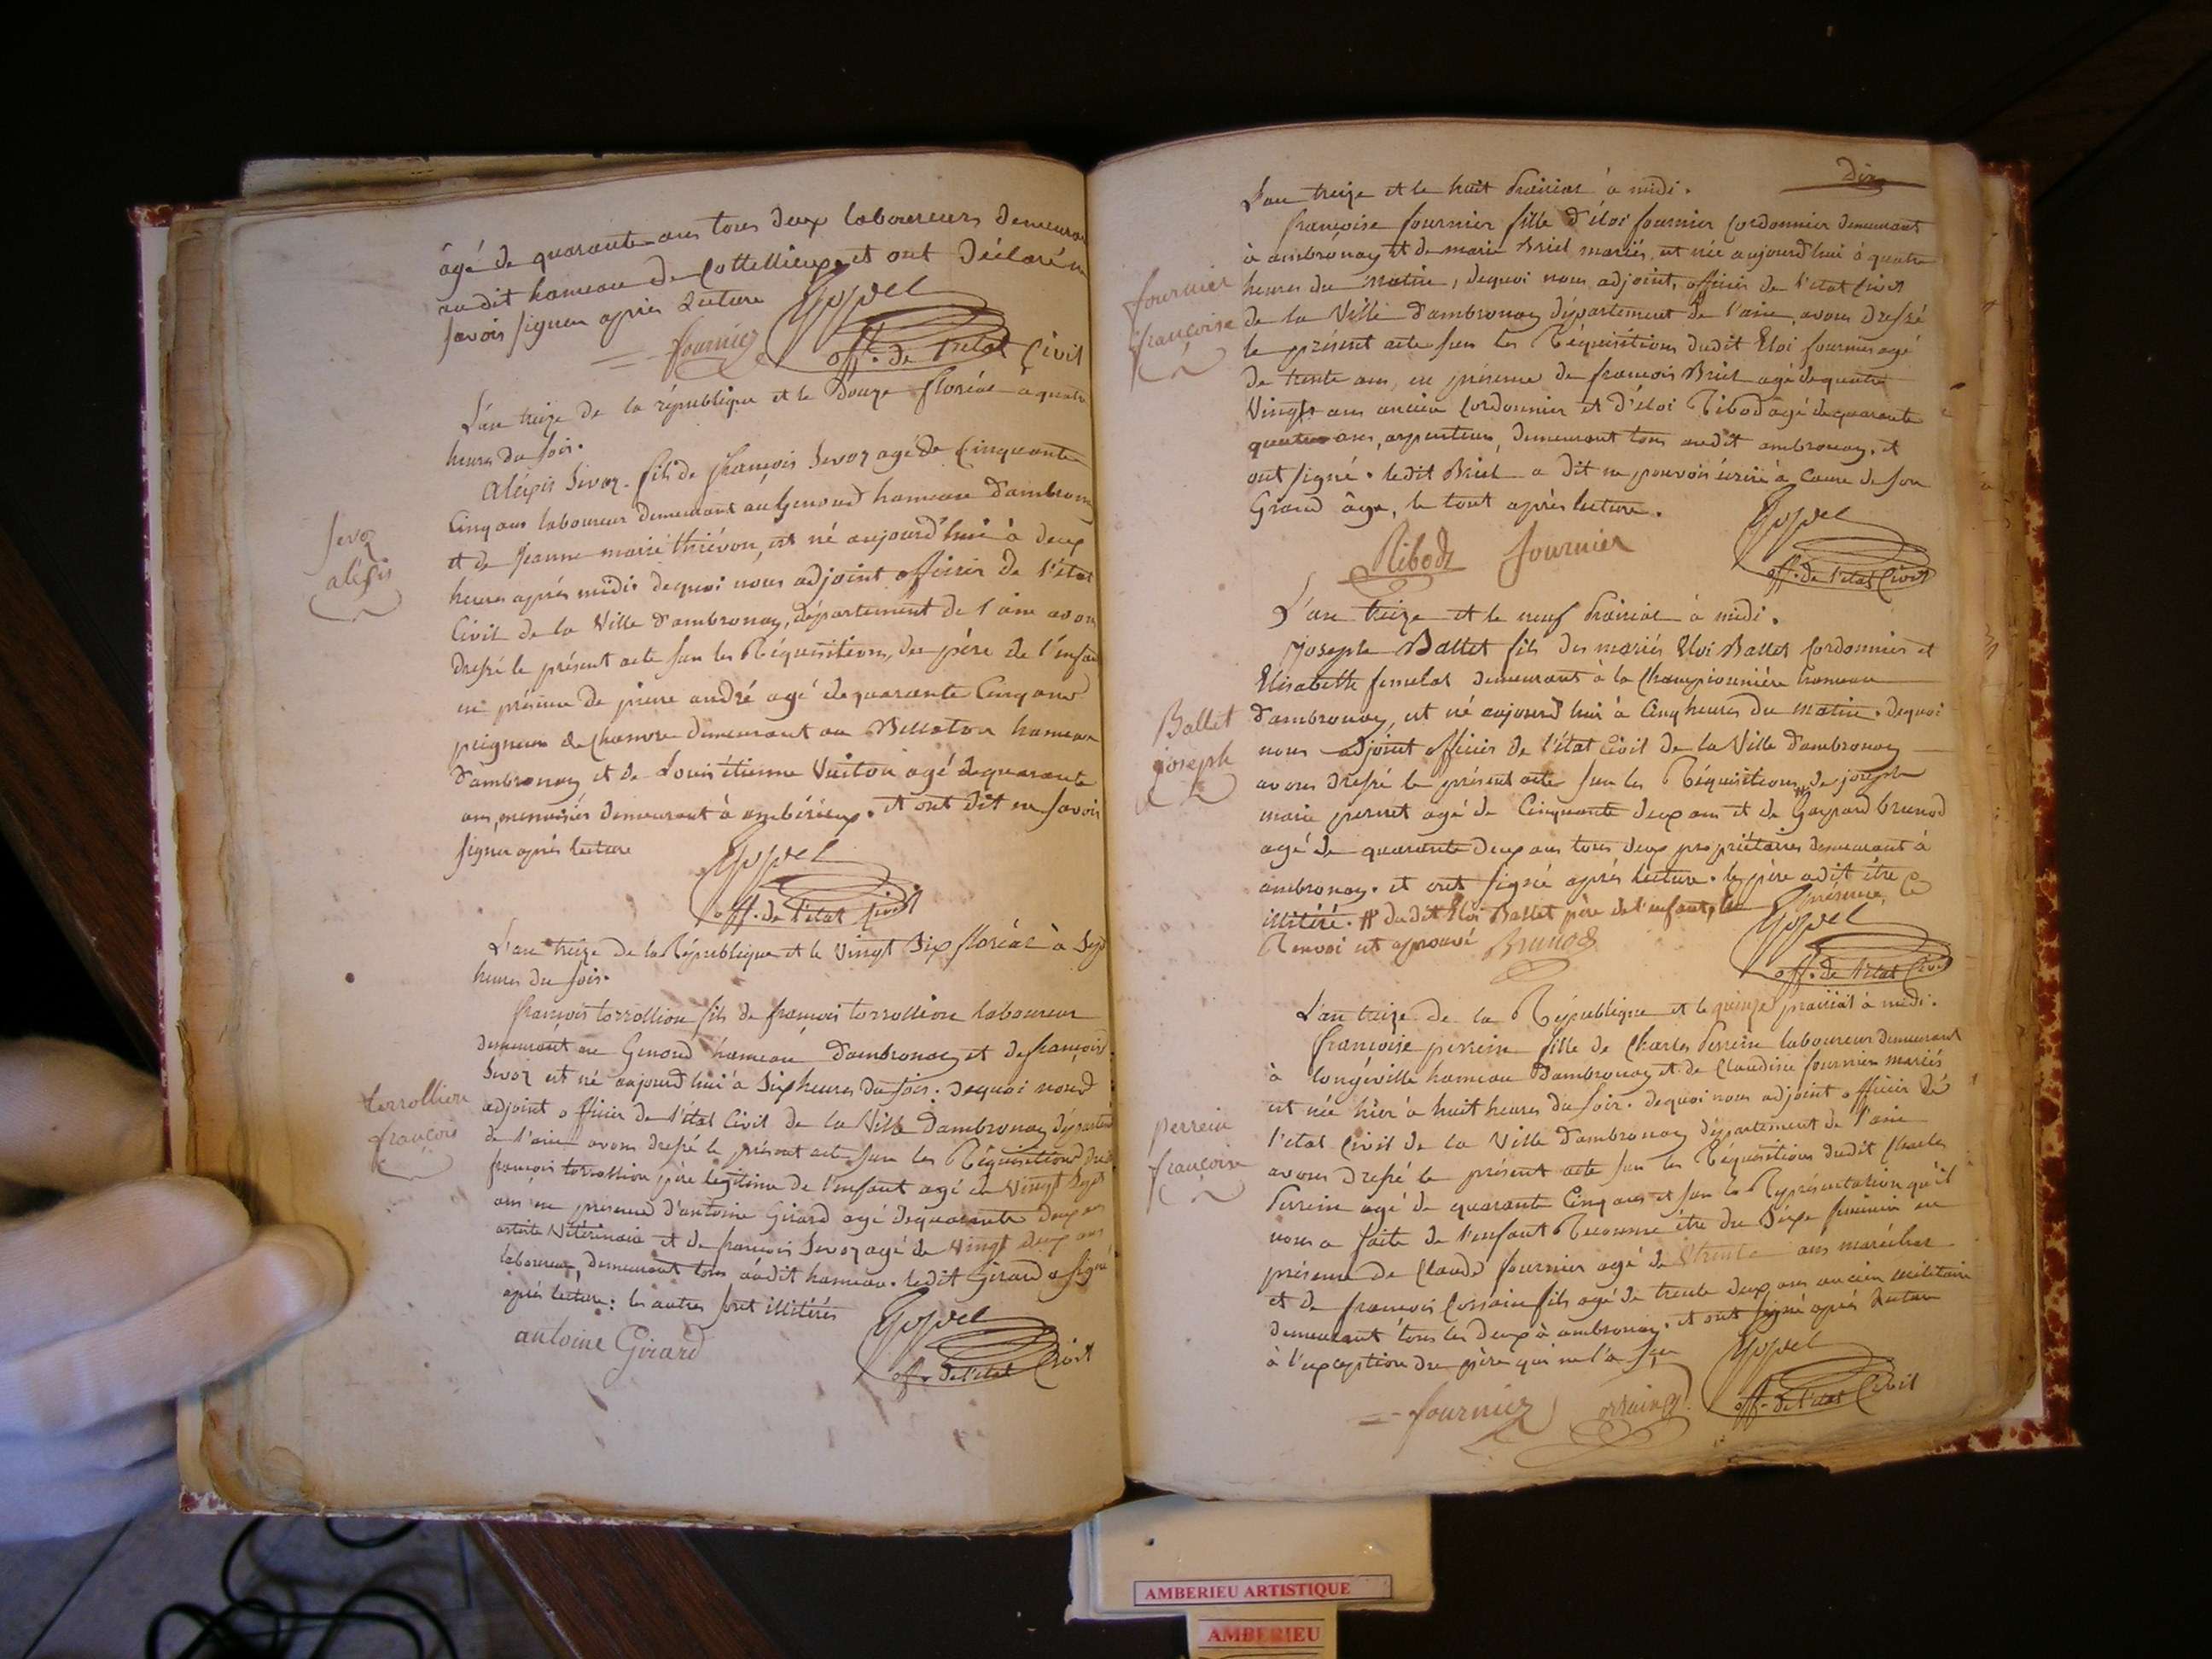 âgé de quarante ans tous deux laboureurs demeurant
audit hameau de Cottellieux et ont Déclaré ne
savoir signer après Lecture
fournier
off. de l'état Civil
L'an treize de la république et le Douze floréal à quatre
heures du soir.
Aléxis Sevoz fils de françois Sevoz agé de Cinquante
Cinq ans laboureur demeurant au Genoud hameau d'ambronay
et de Jeanne marie thiévon, est né aujourd'hui à deux
heures après midi. dequoi nous adjoint officier de l'état
Civil de la Ville d'ambronay, département de l'ain avons
dressé le présent acte sur les Réquisitions, du père de l'enfant
en présence de pierre andré agé de quarante Cinq ans
peigneur de Chanvre demeurant au Bellaton hameau
d'ambronay et de Louis étienne Vuiton agé de quarante
ans, menuisier demeurant à ambérieux. et ont dit ne savoir
signer après lecture
off. de l'état Civil
Sevoz
aléxis
L'an treize de la République et le Vingt Six floréal à Sept
heures du soir.
françois torrollion fils de françois torrollion laboureur
demeurant au Genoud hameau d'ambronay et de françoise
Sevoz est né aujourd'hui à Six heures du soir. dequoi nous
adjoint officier de l'état Civil de la Ville d'ambronay département
de l'ain avons dressé le présent acte sur les Réquisitions dudit
françois torrollion père légitime de l'enfant agé de Vingt Sept
ans en présence d'antoine Girard agé de quarante deux ans
artiste Vétérinaire et de françois Sevoz agé de Vingt deux ans
laboureur, demeurant tous audit hameau. ledit Girard a signé
après lecture: les autres sont illitérés
antoine Girard
off. de l'état Civil
torrollion
françois
Dix
L'an treize et le huit Prairial à midi.
françoise fournier fille d'éloi fournier Cordonnier demeurant
à ambronay et de marie Briel mariés, est née aujourd'hui à quatre
heures du matin, dequoi nous adjoint, officier de l'état Civil
de la Ville d'ambronay département de l'ain, avons dressé
le présent acte sur les Réquisitions dudit Eloi fournier agé
de trente ans, en présence de françois Briel agé de quatre
Vingts ans ancien Cordonnier et d'éloi Ribod agé de quarante
quatre ans, arpenteur, demeurant tous audit ambronay. et
ont signé. ledit Briel a dit ne pouvoir écrire à Cause de son
Grand âge, le tout après lecture.
Ribod fournier
off. de l'état Civil
fournier
françoise
L'an treize et le neuf Prairial à midi.
Joseph Ballet fils des mariés Eloi Ballet Cordonnier et
Elisabeth femelat demeurant à la Championnière hameau
d'ambronay, est né aujourd'hui à Cinq heures du matin. dequoi
nous adjoint officier de l'état Civil de la Ville d'ambronay
avons dressé le présent acte sur les Réquisitions # de joseph
marie pernet agé de Cinquante deux ans et de Gaspard brunod
agé de quarante deux ans tous deux propriétaires demeurant à
ambronay. et ont signé après lecture. le père a dit être
illitéré. # dudit Eloi Ballet père de l'enfant, en présence, Ce
Renvoi est aprouvé Brunod
off. de l'état Civil
Ballet
joseph
L'an treize de la République et le quinze prairial à midi.
françoise perrein fille de Charles Perrein laboureur demeurant
à longeville hameau d'ambronay et de Claudine fournier mariés
est née hier à huit heures du soir. dequoi nous adjoint officier de
l'état Civil de la Ville d'ambronay département de l'ain
avons dressé le présent acte sur les Réquisitions dudit Charles
Perrein agé de quarante Cinq ans et sur la Représentation qu'il
nous a faite de l'enfant Reconnu être du Séxe féminin en
présence de Claude fournier agé de trente ans maréchal
et de françois Corsain fils agé de trente deux ans ancien militaire
demeurant tous les deux à ambronay. et ont signé après Lecture
à l'exception du père qui ne l'a sçu
fournier
off. de l'état Civil
perrein
françoise
AMBERIEU ARTISTIQUE
AMBERIEU